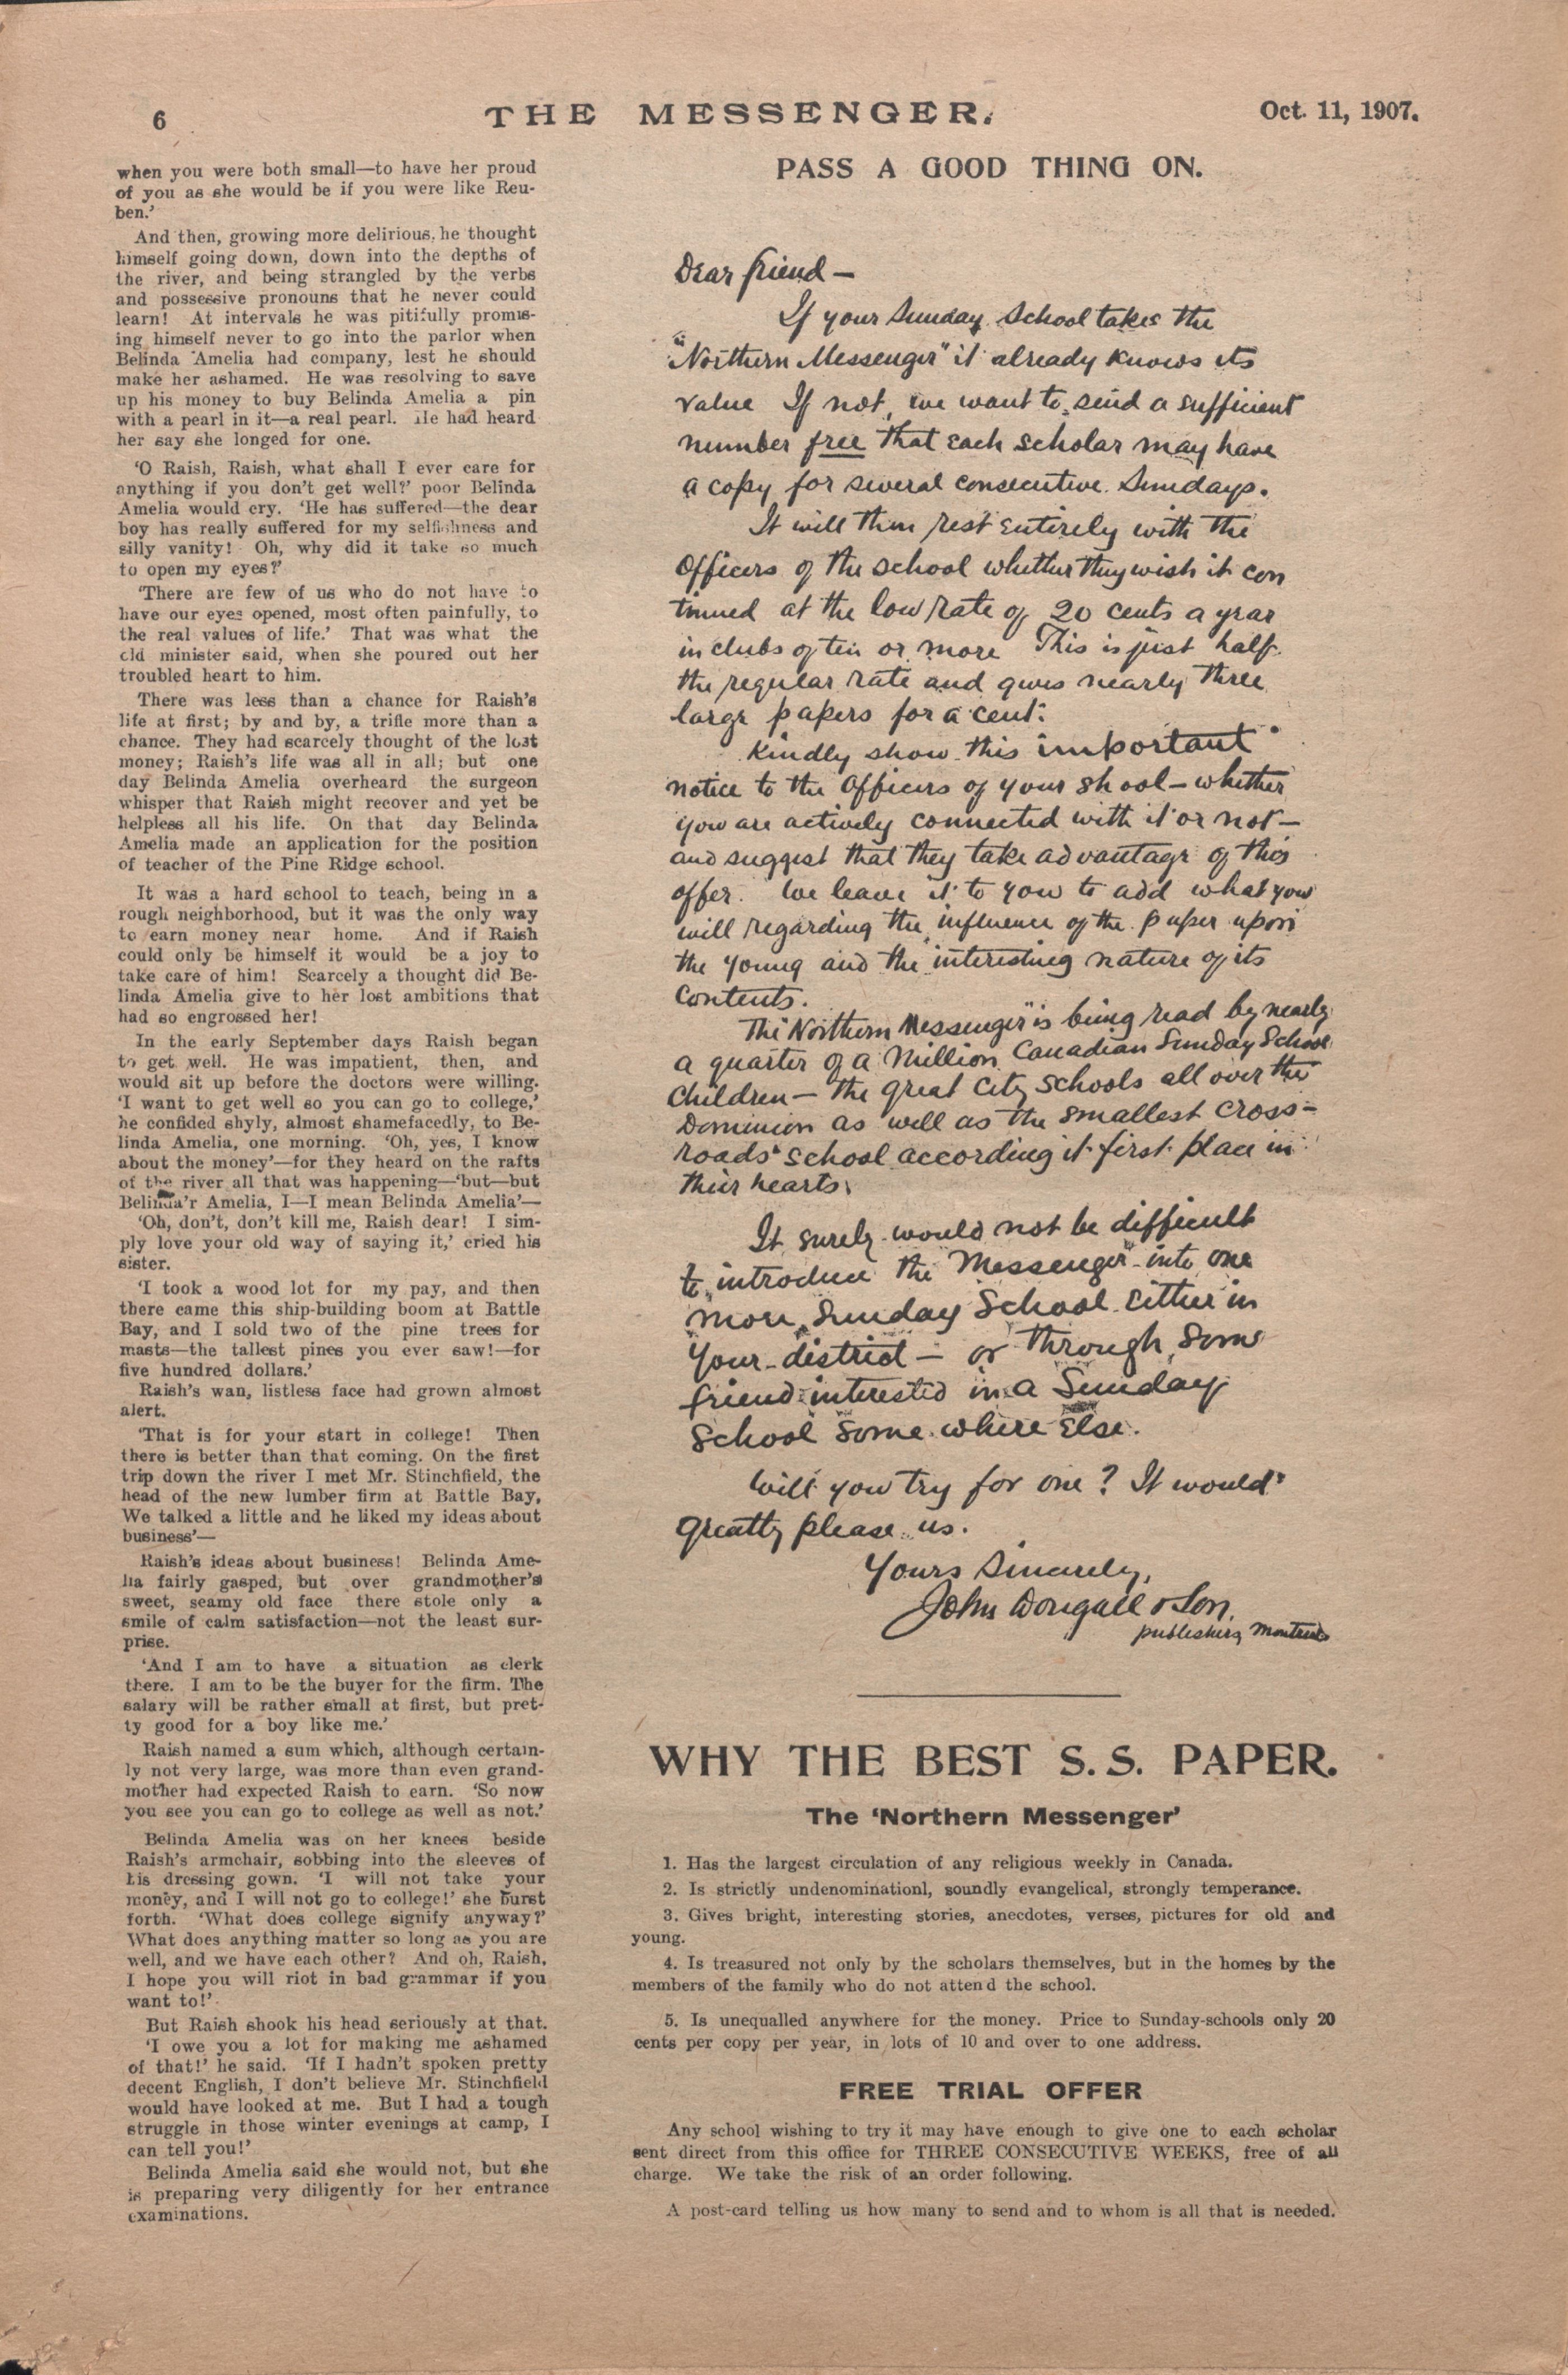 6
THE MESSENGER.
Oct. 11, 1907.
when you were both small—to have her proud
of you as she would be if you were like Reu-
ben.'
And then, growing more delirious, he thought
himself going down, down into the depths of
the river, and being strangled by the verbs
and possessive pronouns that he never could
learn! At intervals he was pitifully promis-
ing himself never to go into the parlor when
Belinda Amelia had company, lest he should
make her ashamed. He was resolving to save
up his money to buy Belinda Amelia a pin
with a pearl in it—a real pearl. He had heard
her say she longed for one.
'O Raish, Raish, what shall I ever care for
anything if you don't get well?' poor Belinda
Amelia would cry. 'He has suffered—the dear
boy has really suffered for my selfishness and
silly vanity! Oh, why did it take so much
to open my eyes?'
'There are few of us who do not have to
have our eyes opened, most often painfully, to
the real values of life.' That was what the
old minister said, when she poured out her
troubled heart to him.
There was less than a chance for Raish's
life at first; by and by, a trifle more than a
chance. They had scarcely thought of the lost
money; Raish's life was all in all; but one
day Belinda Amelia overheard the surgeon
whisper that Raish might recover and yet be
helpless all his life. On that day Belinda
Amelia made an application for the position
of teacher of the Pine Ridge school.
It was a hard school to teach, being in a
rough neighborhood, but it was the only way
to earn money near home. And if Raish
could only be himself it would be a joy to
take care of him! Scarcely a thought did Be-
linda Amelia give to her lost ambitions that
had so engrossed her!
In the early September days Raish began
to get well. He was impatient, then, and
would sit up before the doctors were willing.
'I want to get well so you can go to college,'
he confided shyly, almost shamefacedly, to Be-
linda Amelia, one morning. 'Oh, yes, I know
about the money'—for they heard on the rafts
of the river all that was happening—'but—but
Belinda'r Amelia, I—I mean Belinda Amelia'—
'Oh, don't, don't kill me, Raish dear! I sim-
ply love your old way of saying it,' cried his
sister.
'I took a wood lot for my pay, and then
there came this ship-building boom at Battle
Bay, and I sold two of the pine trees for
masts—the tallest pines you ever saw!—for
five hundred dollars.'
Raish's wan, listless face had grown almost
alert.
'That is for your start in college! Then
there is better than that coming. On the first
trip down the river I met Mr. Stinchfield, the
head of the new lumber firm at Battle Bay,
We talked a little and he liked my ideas about
business'—
Raish's ideas about business! Belinda Ame-
lia fairly gasped, but over grandmother's
sweet, seamy old face there stole only a
smile of calm satisfaction—not the least sur-
prise.
'And I am to have a situation as clerk
there. I am to be the buyer for the firm. The
salary will be rather small at first, but pret-
ty good for a boy like me.'
Raish named a sum which, although certain-
ly not very large, was more than even grand-
mother had expected Raish to earn. 'So now
you see you can go to college as well as not.'
Belinda Amelia was on her knees beside
Raish's armchair, sobbing into the sleeves of
his dressing gown. 'I will not take your
money, and I will not go to college!' she burst
forth. 'What does college signify anyway?'
What does anything matter so long as you are
well, and we have each other? And oh, Raish,
I hope you will riot in bad grammar if you
want to!'
But Raish shook his head seriously at that.
'I owe you a lot for making me ashamed
of that!' he said. 'If I hadn't spoken pretty
decent English, I don't believe Mr. Stinchfield
would have looked at me. But I had a tough
struggle in those winter evenings at camp, I
can tell you!'
Belinda Amelia said she would not, but she
is preparing very diligently for her entrance
examinations.
PASS A GOOD THING ON.
Dear friend—
If your Sunday School takes the
"Northern Messenger" it already knows its
value If not, we want to send a sufficient
number free that each scholar may have
a copy for several consecutive Sundays.
It will then rest entirely with the
Officers of the school whether they wish it con
tinued at the low rate of 20 cents a year
in clubs of ten or more This is just half
the regular rate and gives nearly three
large papers for a cent.
Kindly show this important
notice to the Officers of your shool—whether
you are actively connected with it or not—
and suggest that they take advantage of this
offer. We leave it to you to add what you
will regarding the influence of the paper upon
the young and the interesting nature of its
contents.
The "Northern Messenger" is being read by nearly
a quarter of a Million Canadian Sunday School
Children—the great city schools all over the
Dominion as well as the smallest cross-
roads school according it first place in
their hearts.
It surely would not be difficult
to introduce the "Messenger" into one
more Sunday School either in
your district—or through some
friend interested in a Sunday
School some where else.
Will you try for one? It would
greatly please us.
Yours Sincerely,
John Dougall & Son,
publishers, Montreal
WHY THE BEST S. S. PAPER.
The 'Northern Messenger'
1. Has the largest circulation of any religious weekly in Canada.
2. Is strictly undenominationl, soundly evangelical, strongly temperance.
3. Gives bright, interesting stories, anecdotes, verses, pictures for old and
young.
4. Is treasured not only by the scholars themselves, but in the homes by the
members of the family who do not attend the school.
5. Is unequalled anywhere for the money. Price to Sunday-schools only 20
cents per copy per year, in lots of 10 and over to one address.
FREE TRIAL OFFER
Any school wishing to try it may have enough to give one to each scholar
sent direct from this office for THREE CONSECUTIVE WEEKS, free of all
charge. We take the risk of an order following.
A post-card telling us how many to send and to whom is all that is needed.